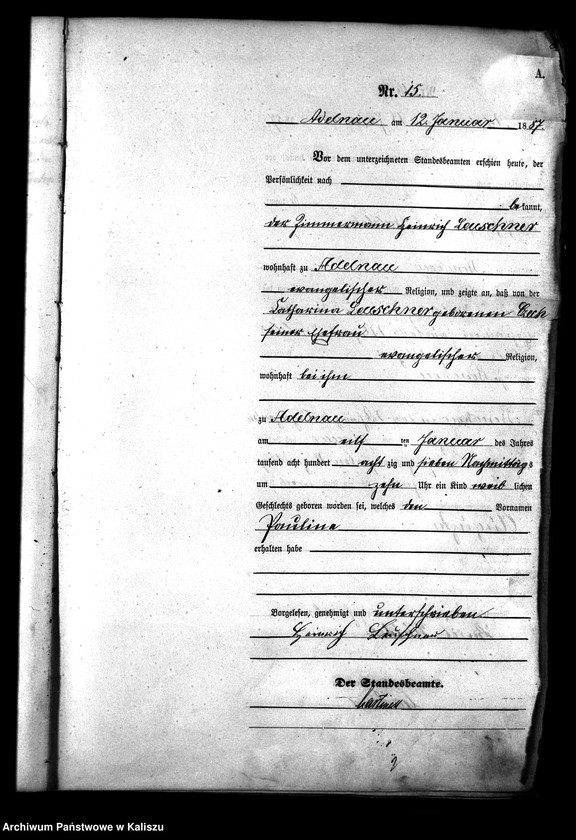 A.
Nr. 15.
Adelnau am 12. Januar 1887.
Vor dem unterzeichneten Standesbeamten erschien heute, der
Persönlichkeit nach
be kannt,
der Zimmermann Heinrich Loeschner
wohnhaft zu Adelnau
evangelischer Religion, und zeigte an, daß von der
Katharina Loeschner geborenen
seiner Ehefrau
evangelischer Religion,
wohnhaft bei ihm
zu Adelnau
am eilf ten Januar des Jahres
tausend acht hundert acht zig und sieben Nachmittags
um zehn Uhr ein Kind weib lichen
Geschlechts geboren worden sei, welches den Vornamen
Pauline
erhalten habe
Vorgelesen, genehmigt und unterschrieben
Heinrich
Der Standesbeamte.
Archiwum Państwowe w Kaliszu